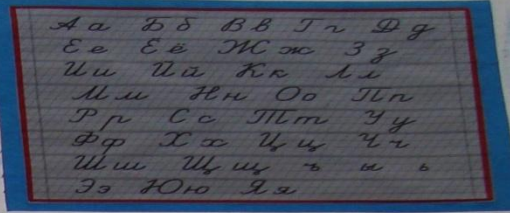 Аа Бб Вв Гг Дд
Ее Её Жж Зз
Ии Йй Кк Лл
Мм Нн Оо Пп
Рр Сс Тт Уу
Фф Хх Цц Чч
Шш Щщ ъ ы ь
Ээ Юю Яя